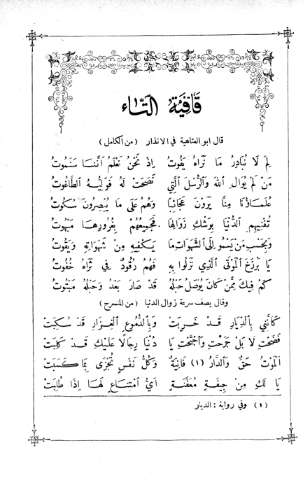 قَافِيَةُ التَّاء
قال ابو العتاهية في الانذار (من الكامل)
لِمَ لَا نُبَادِرُ مَا نَرَاهُ يَفُوتُ إِذْ نَحْنُ نَعْلَمُ أَنَّنَا سَنَمُوتُ
مَنْ لَمْ يُوَالِ اللهَ وَالرُّسْلَ الَّتِي نَصَحَتْ لَهُ فَوَلِيُّهُ الطَّاغُوتُ
عُلَمَاؤُنَا مِنَّا يَرَوْنَ عَجَائِبًا وَهُمُ عَلَى مَا يُبْصِرُونَ سُكُوتُ
تُفْنِيهِمِ الدُّنْيَا بِوَشْكِ زَوَالِهَا فَجَمِيعُهُمْ بِغُرُورِهَا مَبْهُوتُ
وَبِحَسْبِ مَنْ يَسْمُو إِلَى الشَّهَوَاتِ مَا يَكْفِيهِ مِنْ شَهَوَاتِهِ وَيَقُوتُ
يَا بَرْزَخَ الْمَوْتَى الَّذِي نَزَلُوا بِهِ فَهُمُ رُقُودٌ فِي ثَرَاهُ خُفُوتُ
كَمْ فِيكَ مِمَّنْ كَانَ يُوصَلُ حَبْلُهُ قَدْ صَارَ بَعْدُ وَحَبْلُهُ مَبْتُوتُ
وقال يصف سرعة زوال الدنيا (من المنسرح)
كَأَنَّنِي بِالدِّيَارِ قَدْ خَرِبَتْ وَبِالدُّمُوعِ الْغِزَارِ قَدْ سُكِبَتْ
فَضَحْتِ لَا بَلْ جَرَحْتِ وَاجْتَحْتِ يَا دُنْيَا رِجَالًا عَلَيْكِ قَدْ كَلِبَتْ
الْمَوْتُ حَقٌّ وَالدَّارُ (١) فَانِيَةٌ وَكُلُّ نَفْسٍ تُجْزَى بِمَا كَسَبَتْ
يَا لَكِ مِنْ جِيفَةٍ مُعَفَّنَةٍ أَيُّ امْتِنَاعٍ لَهَا إِذَا طُلِبَتْ
(١) وفي رواية: الدنيا